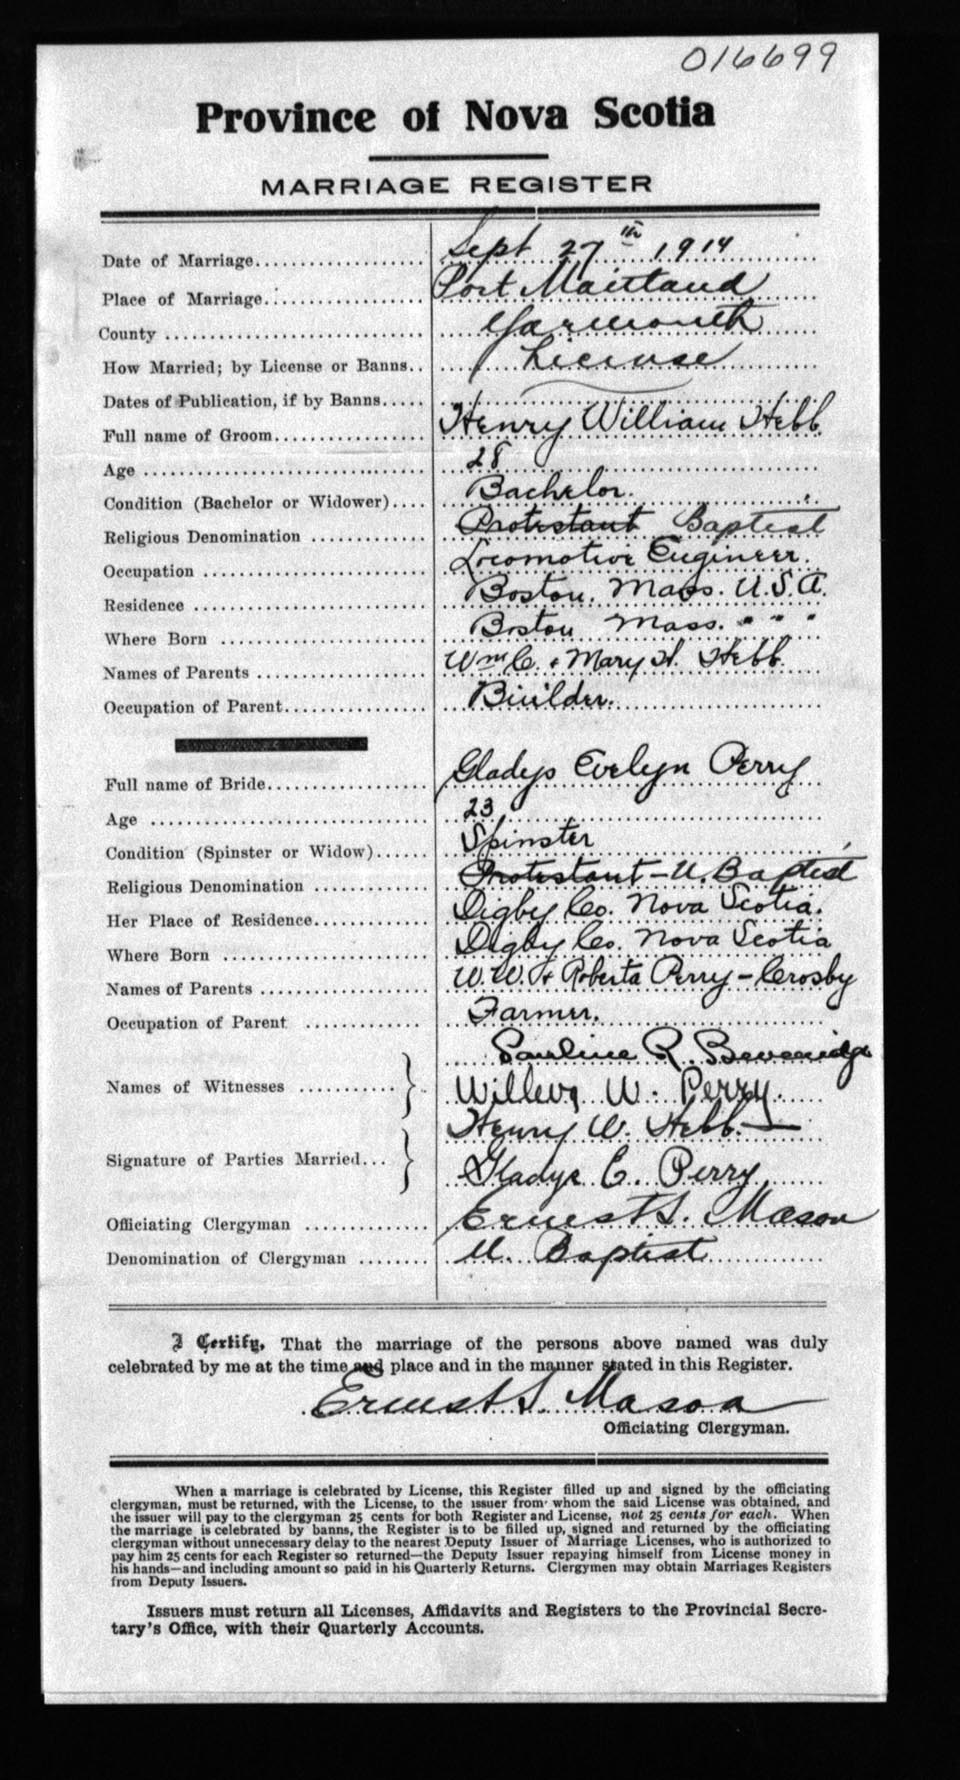 016699
Province of Nova Scotia
MARRIAGE REGISTER
Date of Marriage.................... Sept 27th 1914
Place of Marriage................... Port Maitland
County ........................... Yarmouth
How Married; by License or Banns.. License
Dates of Publication, if by Banns.....
Full name of Groom................. Henry William Hebb.
Age ............................. 28
Condition (Bachelor or Widower).... Bachelor.
Religious Denomination ............ Protestant Baptist
Occupation ....................... Locomotive Engineer.
Residence ........................ Boston, Mass. U.S.A.
Where Born ...................... Boston Mass. " " "
Names of Parents .................. Wm C. & Mary H. Hebb.
Occupation of Parent................ Builder.
Full name of Bride.................. Gladys Evelyn Perry
Age ............................. 23
Condition (Spinster or Widow)...... Spinster
Religious Denomination ............ Protestant - U. Baptist
Her Place of Residence.............. Digby Co. Nova Scotia.
Where Born ...................... Digby Co. Nova Scotia
Names of Parents .................. W. W. & Roberta Perry - Crosby
Occupation of Parent ............. Farmer.
Pauline R. Beveridge
Names of Witnesses ........... } Willeva W. Perry.
Henry W. Hebb.
Signature of Parties Married... } Gladys E. Perry
Officiating Clergyman ............. Ernest S. Mason
Denomination of Clergyman ........ U. Baptist
I Certify, That the marriage of the persons above named was duly
celebrated by me at the time and place and in the manner stated in this Register.
Ernest S. Mason
Officiating Clergyman.
When a marriage is celebrated by License, this Register filled up and signed by the officiating
clergyman, must be returned, with the License, to the issuer from whom the said License was obtained, and
the issuer will pay to the clergyman 25 cents for both Register and License, not 25 cents for each. When
the marriage is celebrated by banns, the Register is to be filled up, signed and returned by the officiating
clergyman without unnecessary delay to the nearest Deputy Issuer of Marriage Licenses, who is authorized to
pay him 25 cents for each Register so returned—the Deputy Issuer repaying himself from License money in
his hands—and including amount so paid in his Quarterly Returns. Clergymen may obtain Marriages Registers
from Deputy Issuers.
Issuers must return all Licenses, Affidavits and Registers to the Provincial Secre-
tary's Office, with their Quarterly Accounts.